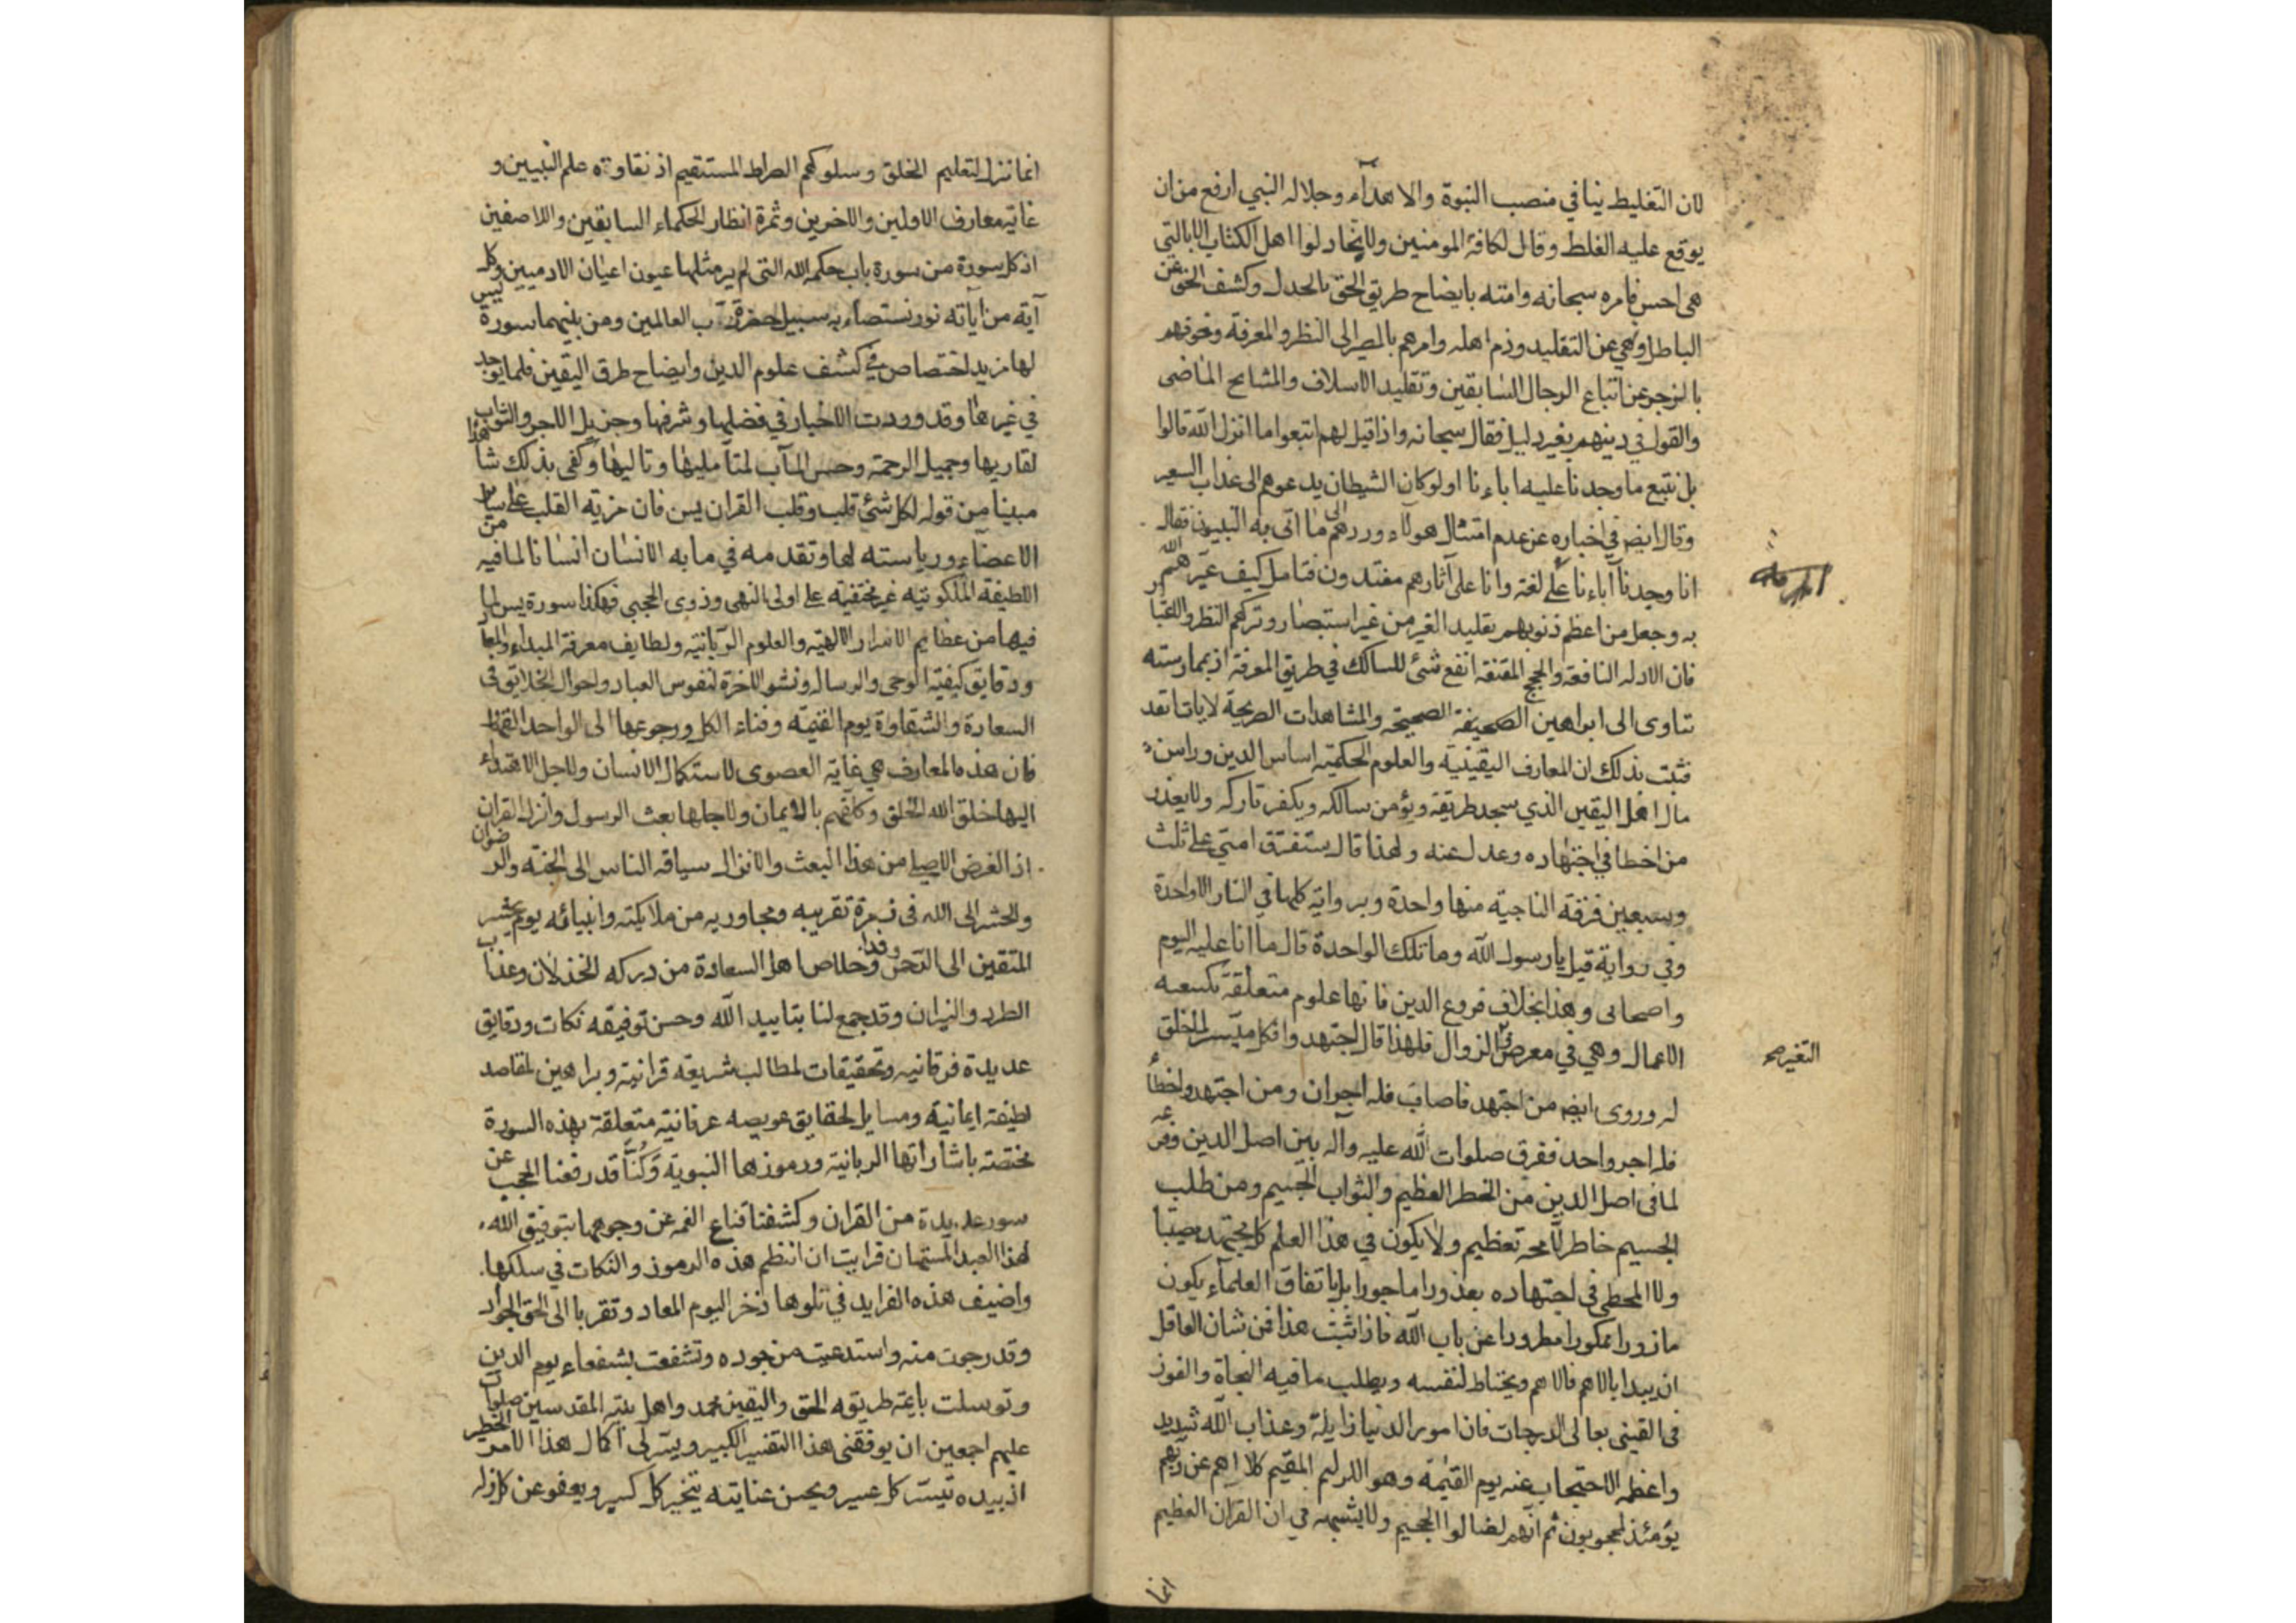 لان التغليط ينافي منصب النبوة والاهداء وجلاله النبي ارفع من ان
يوقع عليه الغلط وقال لكافة المومنين ولا تجادلوا اهل الكتاب الا بالتي
هي احسن فامره سبحانه وامته بايضاح طريق الحق بالجدل وكشف الحق عن
الباطل ونهي عن التقليد وذم اهله وامرهم بالمصير الى النظر والمعرفة وخوفهم
بالزجر عن اتباع الرجال السابقين وتقليد الاسلاف والمشايخ الماضي
والقول في دينهم بغير دليل فقال سبحانه واذا قيل لهم اتبعوا ما انزل الله قالوا
بل نتبع ما وجدنا عليه اباءنا اولو كان الشيطان يدعوهم الى عذاب السعير
وقال ايضا في اخباره عن عدم امتثال هولاء وردهم الى ما اتى به النبيون فقال
انا وجدنا آباءنا على لغة وانا على آثارهم مقتدون فتامل كيف عيرهم الله
به وجعل من اعظم ذنوبهم تقليد الغير من غير استبصار وتركهم النظر والاعتبار
فان الادله النافعة والحجج المقنعة انفع شئ للسالك في طريق المعرفة اذ بممارسته
تتاوى الى ابراهين الصحيفة الصحيحة والمشاهدات الصريحة لاياتنا تقد
فثبت بذلك ان المعارف اليقينية والعلوم الحكمية اساس الدين وراس
مال اهل اليقين الذي سجد طريقه ويؤمن سالكه ويكفر تاركه ولا يعذر
من اخطا في اجتهاده وعدل عنه ولهذا قال ستفترق امتي على ثلث
وسبعين فرقة الناجية منها واحدة وبرواية كلها في النار الا واحدة
وفي رواية قيل يا رسول الله وما تلك الواحدة قال ما انا عليه اليوم
واصحابى وهذا بخلاف فروع الدين فانها علوم متعلقة بكسعه
الاعمال وهي في معرض الزوال فلهذا قال اجتهدوا فكل ميسر لما خلق
له وروى ايضا من اجتهد فاصاب فله اجران ومن اجتهد واخطأ
فله اجر واحد ففرق صلوات الله عليه وآله بين اصل الدين وفرعه
لما في اصل الدين من الخطر العظيم والثواب الجسيم ومن طلب
الجسيم خاطر لامحة تعظيم ولا يكون في هذا العلم كل مجتهد مصيبا
ولا المخطى في اجتهاده معذورا ماجورا بل باتفاق العلماء يكون
مازورا ممكورا مطرودا عن باب الله فاذا ثبت هذا فمن شان العاقل
ان يبدا بالاهم فالاهم ويحتاط لنفسه ويطلب ما فيه النجاة والفوز
في القيني بعالى الدرجات فان امور الدنيا زايلة وعذاب الله شديد
واعظمه الاحتجاب عنه يوم القيمة وهو الالم المقيم كلا انهم عن ربهم
يومئذ لمحجوبون ثم انهم لصالوا الجحيم ولا يشبهه في ان القران العظيم
انما
التغير صح
انما نزل لتعليم الخلق وسلوكهم الصراط المستقيم اذ نقاوته علم النبيين و
غاية معارف الاولين والاخرين وثمرة انظار الحكماء السابقين واللاصفين
اذ كل سورة من سورة باب حكمه الله التى لم ير مثلها عيون اعيان الادميين وكل
آية من آياته نور نستضاء به سبيل حضرة رب العالمين ومن بينهما سورة يس
لها مزيد اختصاص في كشف علوم الدين وايضاح طرق اليقين فلما يوجد
في غيرها وقد وردت الاخبار في فضلها وشرفها وجزيل الاجر والثواب
لقاريها وجميل الرحمة وحسن المآب لمتأمليها وتاليها وكفى بذلك شاهدا
مبينا من قوله لكل شئ قلب وقلب القران يس فان مزية القلب على ساير
الاعضاء ورياسته لها وتقدمه في ما به الانسان انسانا لما فيه من
اللطيفة الملكوتيه غير مختفية على اولى النهى وذوى الحجى فهكذا سورة يس لما
فيها من عظايم الاسرار الالهيه والعلوم الربانيه ولطايف معرفة المبداء والمعاد
ودقايق كيفية الوحى والرسال ونشو الاخرة لنفوس العباد واحوال الخلايق في
السعادة والشقاوة يوم القيمة وفناء الكل ورجوعها الى الواحد القهار
فان هذه المعارف هي غاية القصوى لاستكمال الانسان ولاجل الاهتداء
اليها خلق الله الخلق وكلفهم بالايمان ولاجلها بعث الرسول وانزل القران
اذ الغرض الاصلي من هذا البعث والانزال سياقة الناس الى الجنة والرضوان
والحشر الى الله في زمرة تقريبه ومجاوريه من ملايكته وانبيائه يوم يحشر
المتقين الى الرحمن وفدا وخلاص اهل السعادة من دركه الخذلان وعذاب
الطرد والنيران وقد جمع لنا بتاييد الله وحسن توفيقه نكات ودقايق
عديدة فرقانيه وتحقيقات لمطالب شريفه قرانية وبراهين لمقاصد
لطيفة ايمانية ومسايل لحقايق عويصه عرفانية متعلقة بهذه السورة
مختصة باشاراتها الربانية ورموزها النبوية وكنا قد رفعنا الحجب عن
سور عديدة من القران وكشفنا قناع الغمه عن وجوهها بتوفيق الله
لهذا العبد المستهان فرايت ان انظم هذه الرموز والنكات في سلكها
واضيف هذه الفرايد في تلوها ذخرا ليوم المعاد وتقربا الى الحق الجواد
وقد رجوت منه واستدعيت من جوده وتشفعت بشفعاء يوم الدين
وتوسلت بايمة طريقه الحق واليقين محمد واهل بيته المقدسين صلوات
عليهم اجمعين ان يوفقنى هذا التفسير الكبير ويسر لى اكمال هذا الامر الخطير
اذ بيده تيسر كل عسير وبحسن عنايته ينجبر كل كسير ويعفو عن كل زله